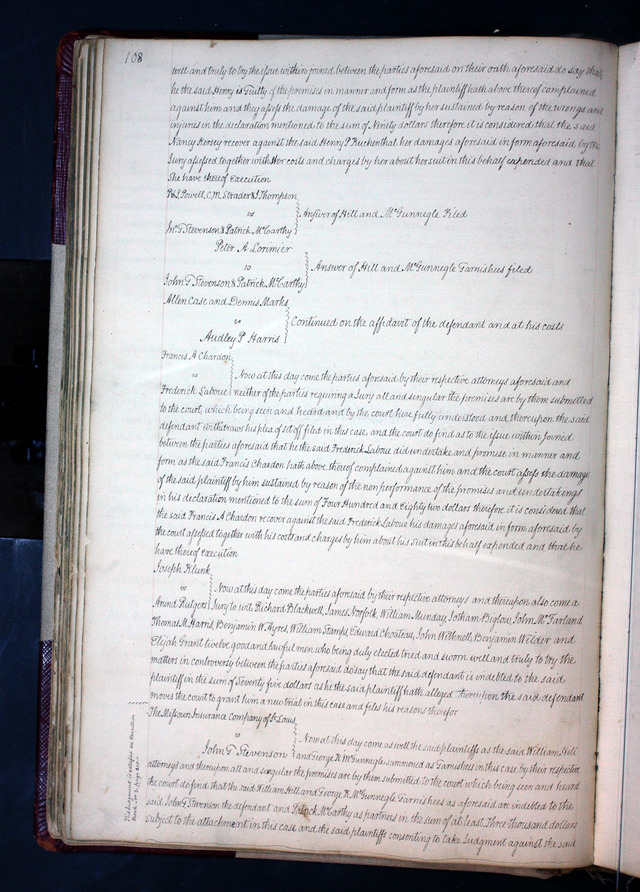 108
well and truly to try the issue within joined between the parties aforesaid on their oath aforesaid do say that
he the said Henry is Guilty of the premises in manner and form as the plaintiff hath above thereof complained
against him and they assess the damage of the said plaintiff by her sustained by reason of the wrongs and
injuries in the declaration mentioned to the sum of Ninety dollars therefore it is considered that the said
Nancy Kersey recover against the said Henry P Ruchenthat her damages aforesaid in form aforesaid by the
Jury assessed together with Hor costs and charges by her about her suit in this behalf expended and that
She have thereof Execution
Powell, C.M. Strader & J Thompson
vs } Answer of Hill and McGunnegle Filed
Jno. T Stevenson & Patrick McCarthy
Peter A Lorimier
vs } Answer of Hill and McGunnegle Garnishees filed
John T Stevenson & Patrick McCarthy
Allen Case and Dennis Marks
vs } Continued on the affidavit of the defendant and at his costs
Audley P Harris
Francis A Chardon
vs } Now at this day come the parties aforesaid by their respective attorneys aforesaid and
Frederick Laboue neither of the parties requiring a Jury all and singular the premises are by them submitted
to the court, which being seen and heard and by the court here fully understood and thereupon the said
defendant withdraws his plea of set off filed in this case, and the court do find as to the issue within joined
between the parties aforesaid that he the said Frederick Laboue did undertake and promise in manner and
form as the said Francis Chardon hath above thereof complained against him and the court assess the damage
of the said plaintiff by him sustained by reason of the non performance of the promises and undertakings
in his declaration mentioned to the sum of Four Hundred and Eighty two dollars therefore it is considered that
the said Francis A Chardon recover against the said Frederick Laboue his damages aforesaid in form aforesaid by
the court assessed together with his costs and charges by him about his suit in this behalf expended and that he
have thereof execution
Joseph Klunk
vs } Now at this day come the parties aforesaid by their respective attorneys and thereupon also come a
Arend Rutgers Jury to wit, Richard Blackwell, James Norfolk, William Munday, Jotham Biglow, John McFarland
Thomas M. Harris, Benjamin W. Ayres, William Stamps, Edward Chouteau, John Withnell, Benjamin Wilder and
Elijah Grant twelve good and lawful men who being duly elected tried and sworn well and truly to try the
matters in controversy between the parties aforesaid do say that the said defendant is indebted to the said
plaintiff in the sum of Seventy five dollars as he the said plaintiff hath alleged thereupon the said defendant
moves the court to grant him a new trial in this case and files his reasons therefor
The Missouri Insurance Company of St Louis
vs } Now at this day come as well the said plaintiffs as the said William Hill
John T Stevenson and George K McGunnegle summoned as Garnishees in this case by their respective
attorneys and thereupon all and singular the premises are by them submitted to the court which being seen and heard
the court do find that the said William Hill and George K. McGunnegle Garnishees as aforesaid are indebted to the
said John T Stevenson the defendant and Patrick McCarthy as partners in the sum of at least Three thousand dollars
subject to the attachment in this case and the said plaintiffs consenting to take Judgment against the said